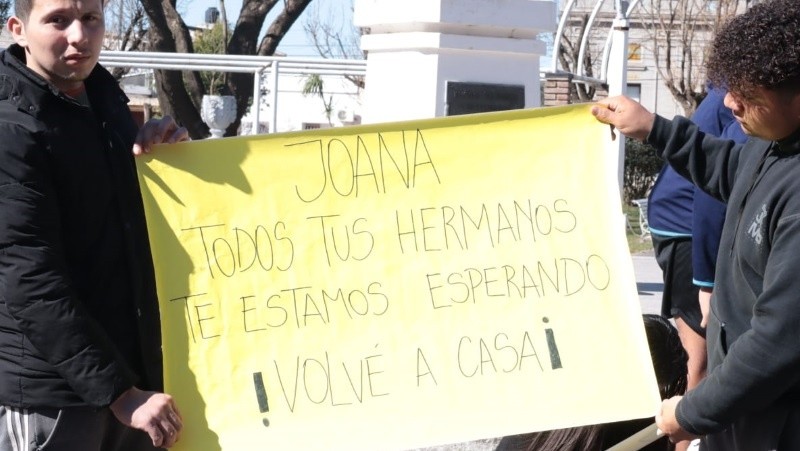 JOANA
TODOS TUS HERMANOS
TE ESTAMOS ESPERANDO
!VOLVÉ A CASA¡